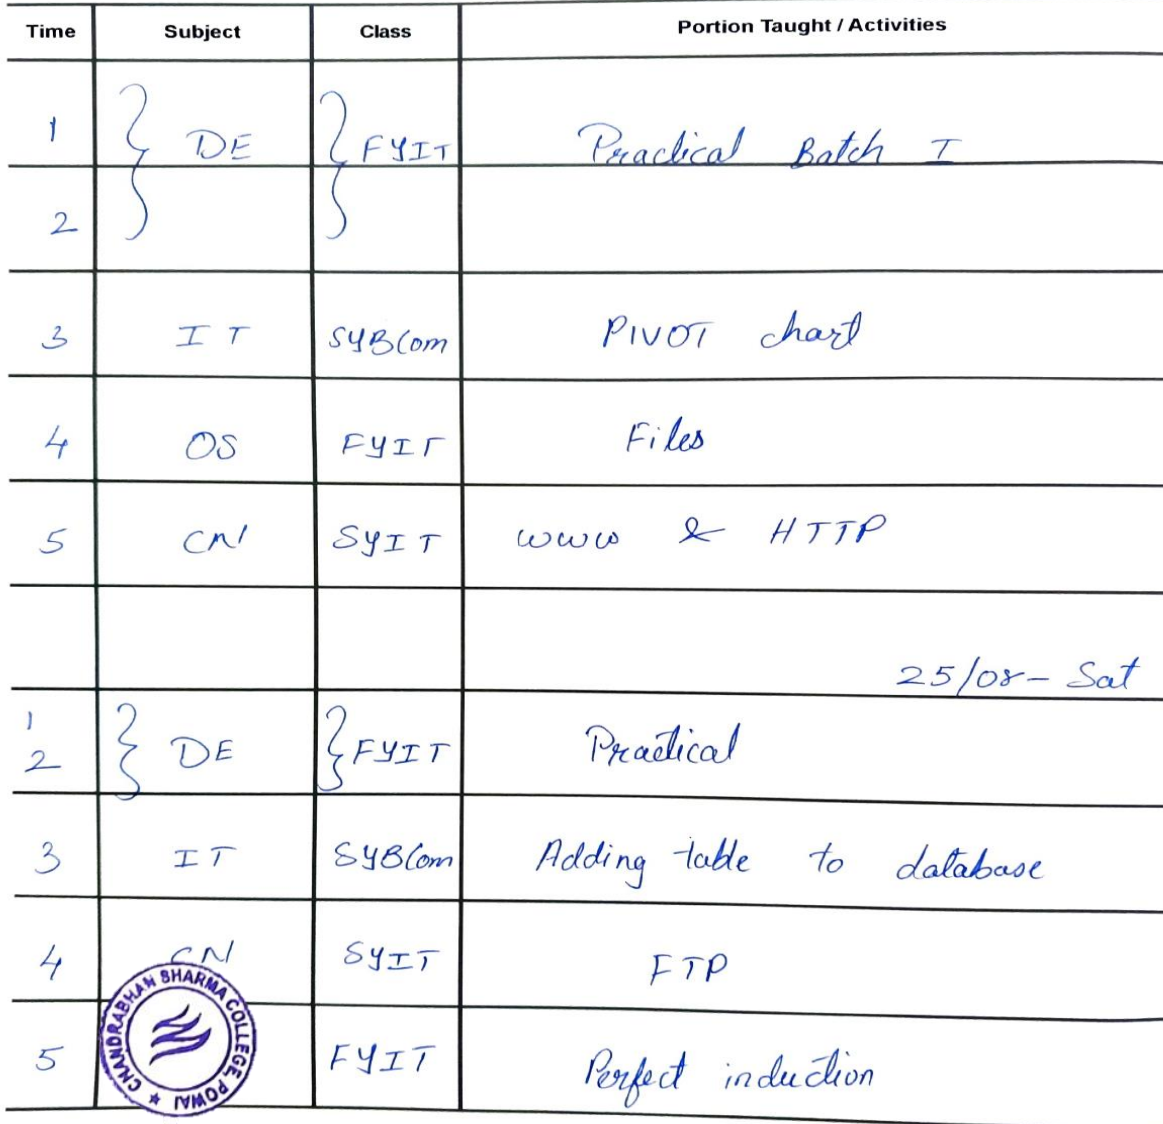 Time Subject Class Portion Taught / Activities
1 DE FYIT Practical Batch I
2
3 IT SYBCom PIVOT chart
4 OS FYIT Files
5 CN SYIT WWW & HTTP
25/08 - Sat
1
2 DE FYIT Practical
3 IT SYBCom Adding table to database
4 CN SYIT FTP
5 FYIT Perfect induction
CHANDRABHAN SHARMA COLLEGE, POWAI ★